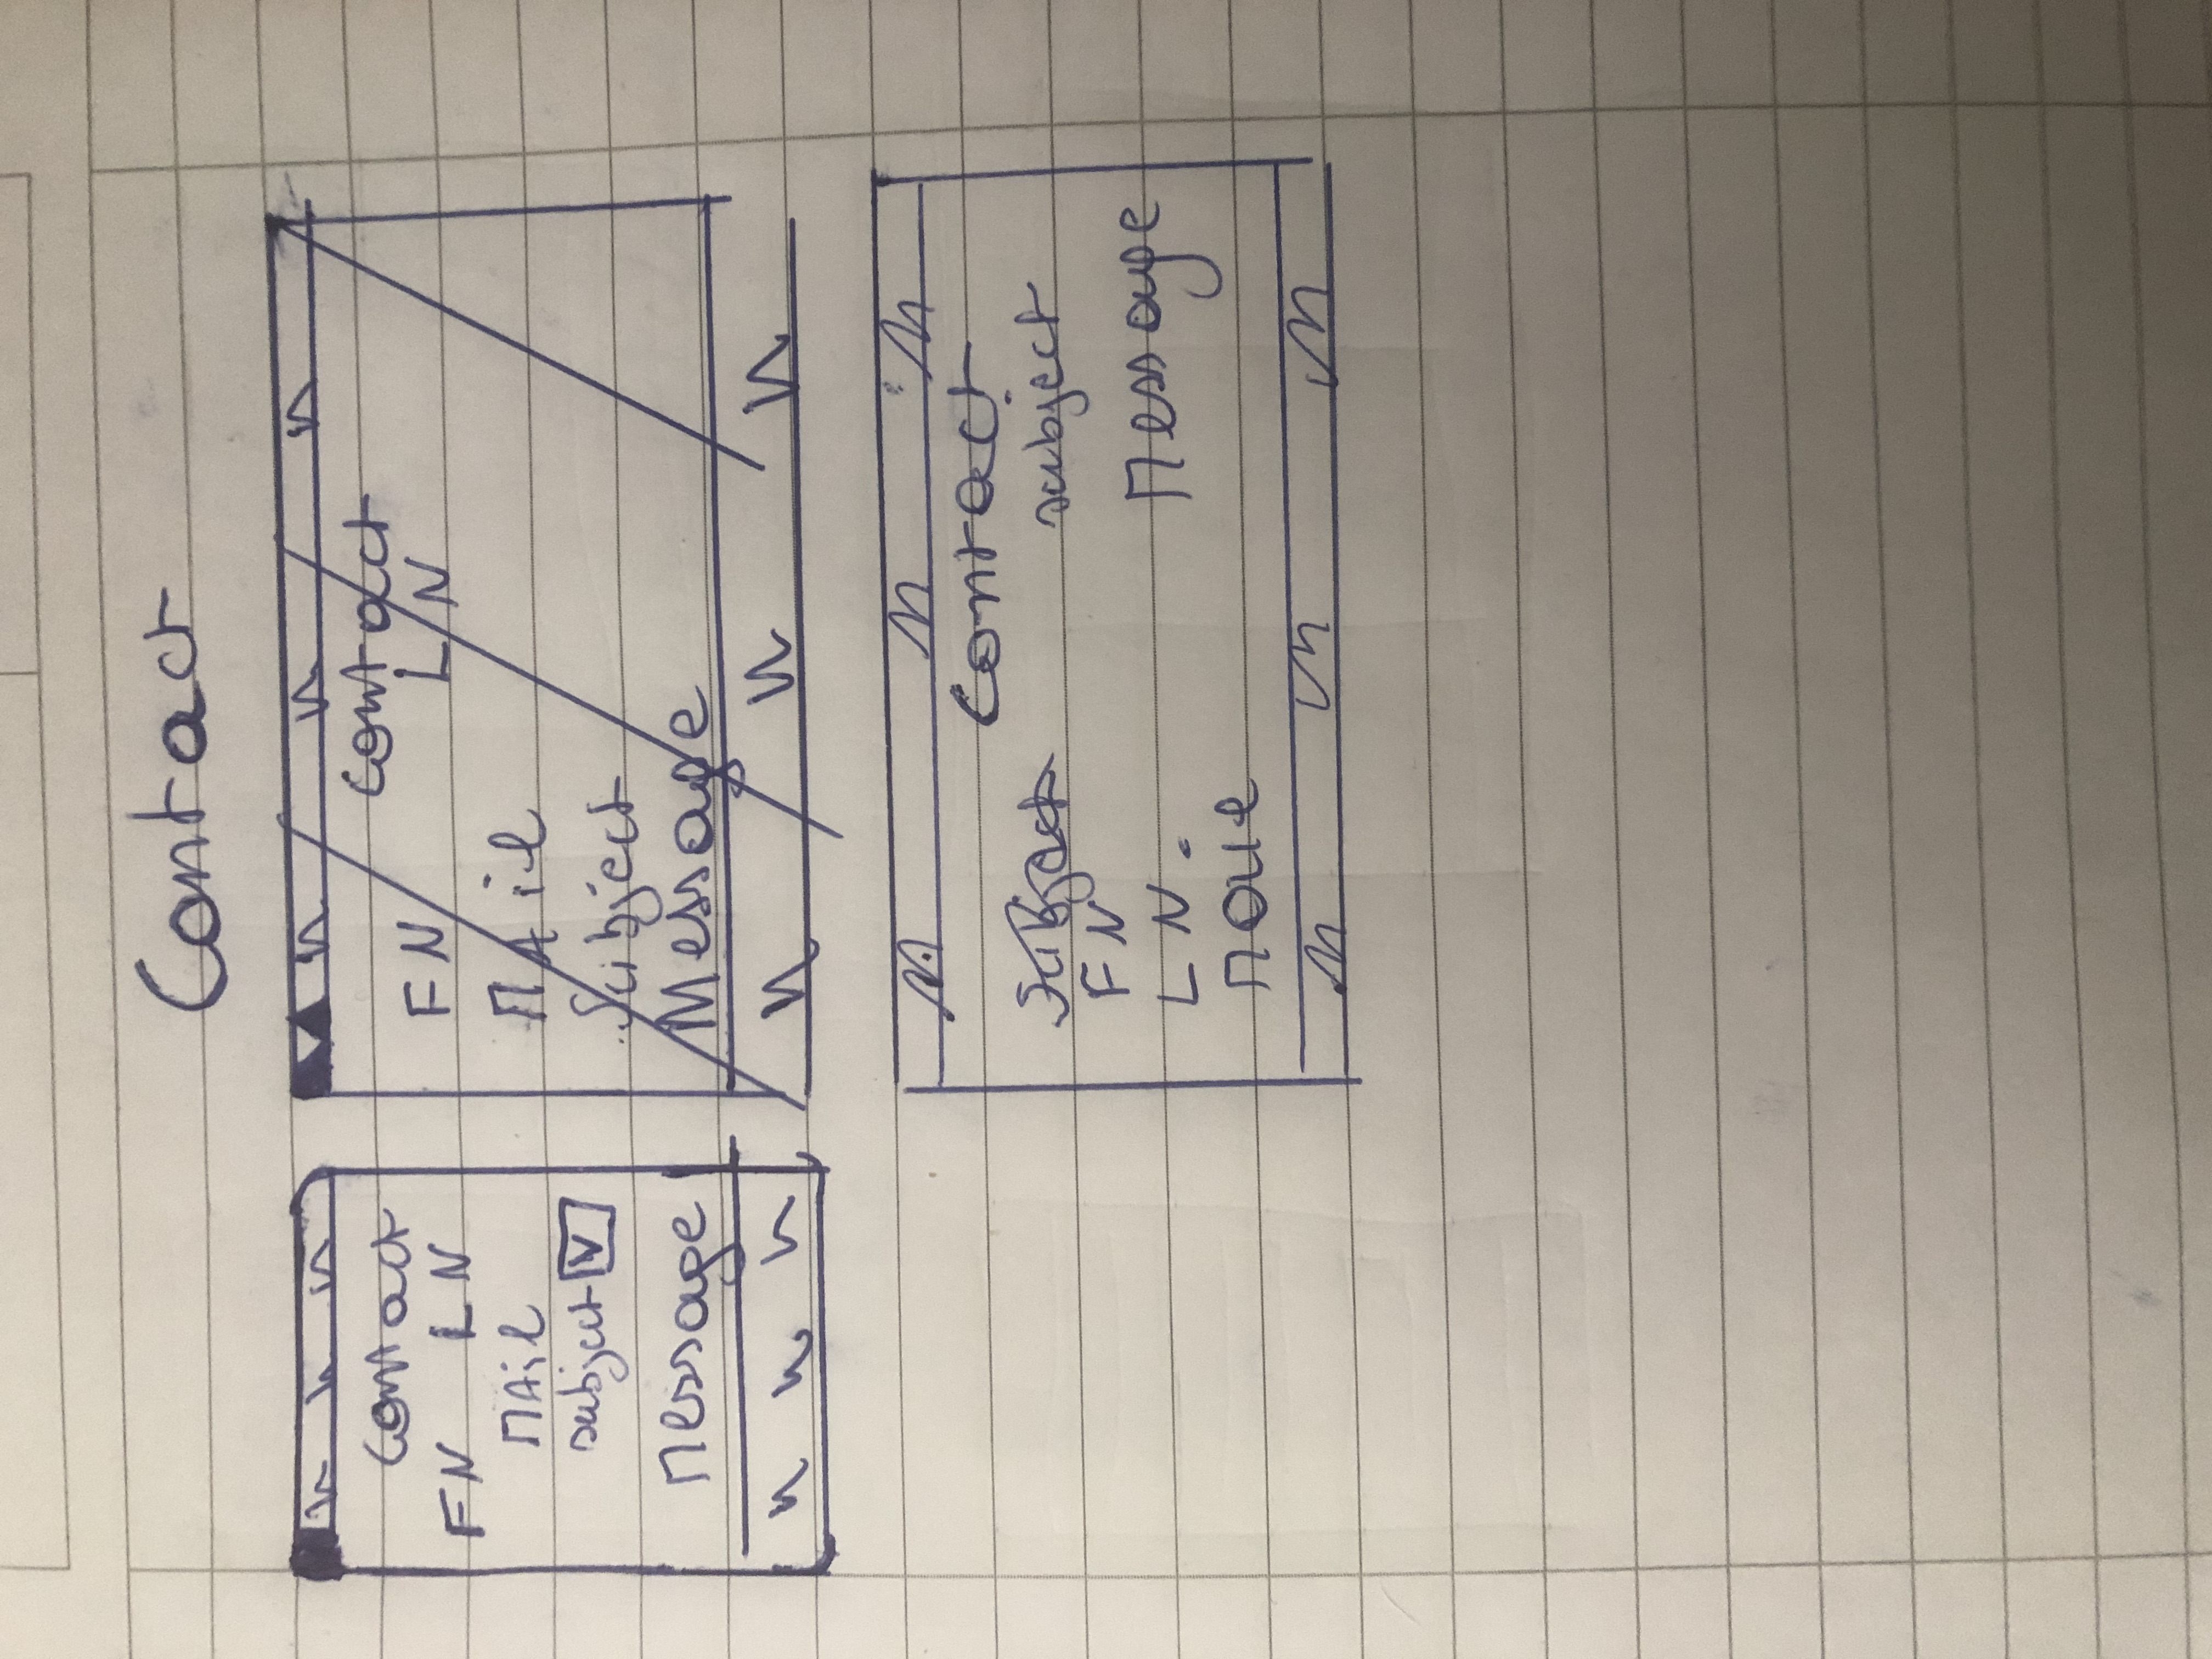 Contact
Contact
FN LN
MAil
subject V
Message
Contact
FN LN
MAil
Subject
Message
Contact
Subject subject
FN
LN.
Message